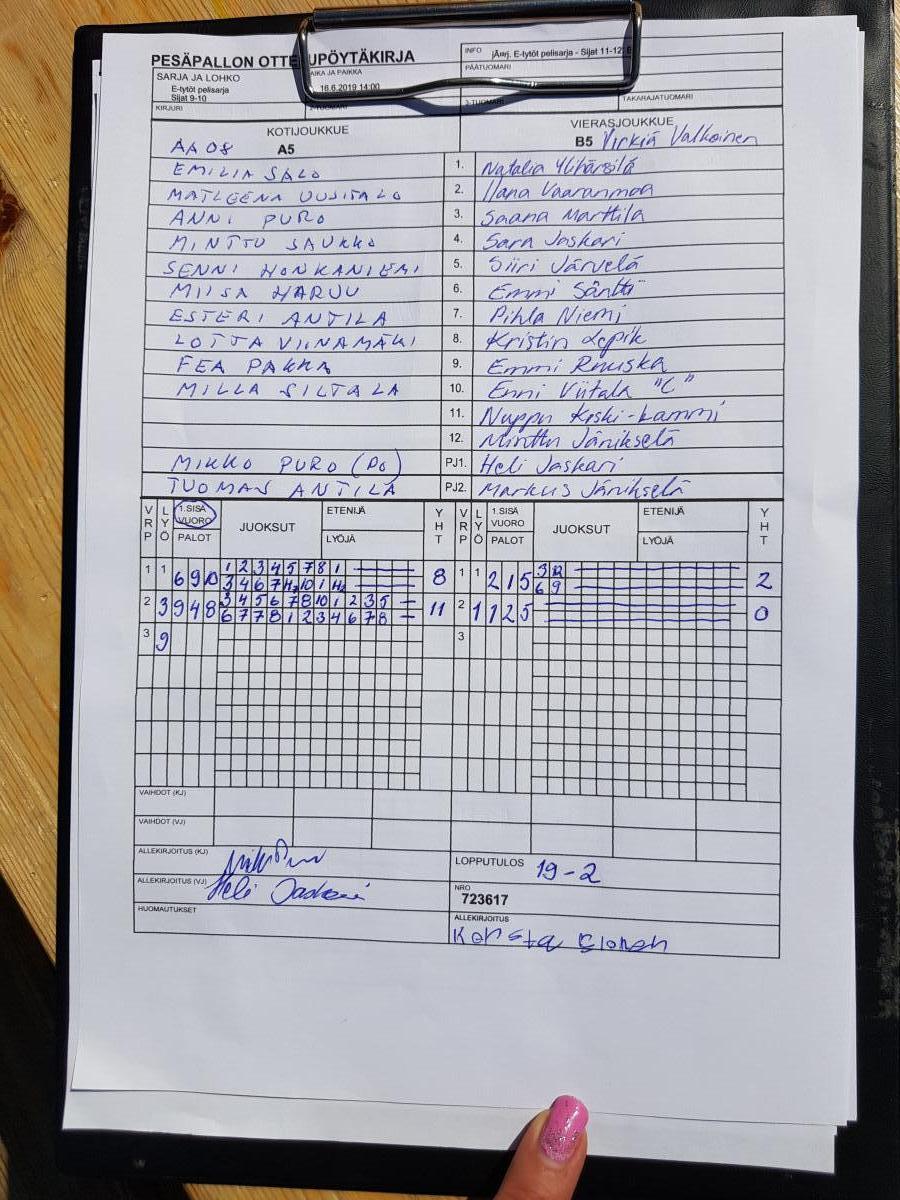 PESÄPALLON OTTELUPÖYTÄKIRJA
INFO jÄrj. E-tytöt pelisarja - Sijat 11-12
SARJA JA LOHKO
E-tytöt pelisarja
Sijat 9-10
AIKA JA PAIKKA
16.6.2019 14:00
PÄÄTUOMARI
KIRJURI 2-TUOMARI 3-TUOMARI TAKARAJATUOMARI
KOTIJOUKKUE VIERASJOUKKUE
AA08 A5 B5 Virkiä Valkoinen
EMILIA SALO 1. Natalia Ylihärsilä
MATLEENA UUSITALO 2. Ilana Vaaranmaa
ANNI PURO 3. Saana Marttila
MINTTU SAUKKO 4. Sara Jaskari
SENNI HONKANIEMI 5. Siiri Järvelä
MIISA HARJU 6. Emmi Säntti
ESTERI ANTILA 7. Pihla Niemi
LOTTA VIINAMÄKI 8. Kristin Lepik
FEA PAKKA 9. Emmi Rnuska
MILLA SILTALA 10. Enni Viitala "C"
11. Nuppu Kiski-Lammi
12. Minttu Jänikselä
MIKKO PURO (PO) PJ1. Heli Jaskari
TUOMAS ANTILA PJ2. Markus Jänikselä
VRP LYÖ 1.SISÄ VUORO PALOT JUOKSUT ETENIJÄ LYÖJÄ YHT VRP LYÖ 1.SISÄ VUORO PALOT JUOKSUT ETENIJÄ LYÖJÄ YHT
1 1 6 9 10 1 2 3 4 5 7 8 1 8 1 1 2 1 5 2
3 4 6 7 10 1 6 9
2 3 9 4 8 3 4 5 6 7 8 10 1 2 3 5 11 2 1 1 2 5 0
6 7 7 8 1 2 3 4 6 7 8
3 9 3
VAIHDOT (KJ)
VAIHDOT (VJ)
ALLEKIRJOITUS (KJ)
LOPPUTULOS 19-2
ALLEKIRJOITUS (VJ) Heli Jaskari
NRO
723617
HUOMAUTUKSET
ALLEKIRJOITUS
Konsta